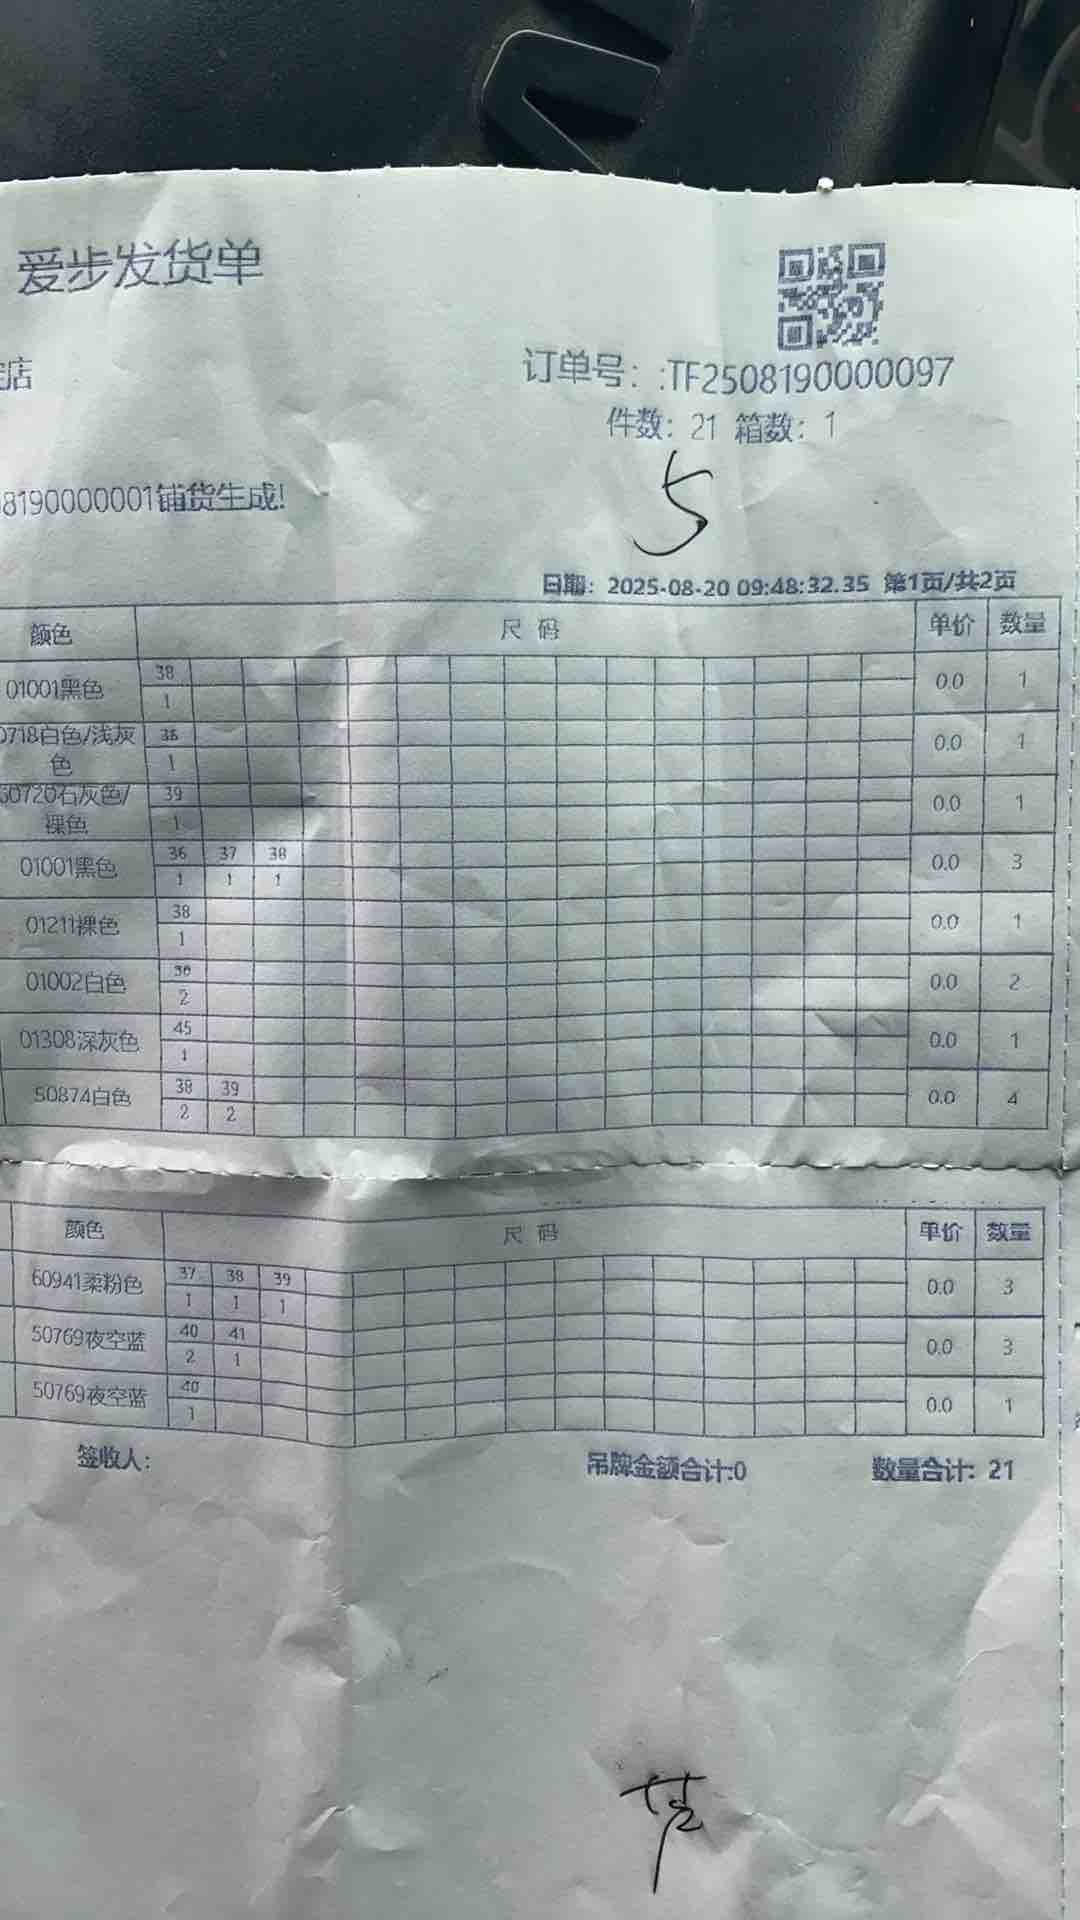 爱步发货单
店
订单号：:TF2508190000097
件数：21 箱数：1
5
8190000001铺货生成!
日期：2025-08-20 09:48:32.35 第1页/共2页
颜色 尺 码 单价 数量
01001黑色 38 0.0 1
1
0718白色/浅灰色 36 0.0 1
1
60720石灰色/裸色 39 0.0 1
1
01001黑色 36 37 38 0.0 3
1 1 1
01211裸色 38 0.0 1
1
01002白色 36 0.0 2
2
01308深灰色 45 0.0 1
1
50874白色 38 39 0.0 4
2 2
颜色 尺 码 单价 数量
60941柔粉色 37 38 39 0.0 3
1 1 1
50769夜空蓝 40 41 0.0 3
2 1
50769夜空蓝 40 0.0 1
1
签收人： 吊牌金额合计:0 数量合计：21